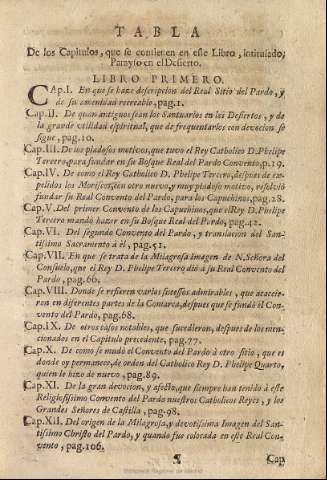 TABLA
De los Capitulos, que se contienen en este Libro, intitulado,
Parayso en el Desierto.
LIBRO PRIMERO.
CAp.I. En que se haze descripcion del Real Sitio del Pardo, y
de su amenidad recreable, pag.1.
Cap.II. De quan antiguos sean los Santuarios en los Desiertos, y de
la grande vtilidad espiritual, que de frequentarlos con devocion se
sigue, pag.10.
Cap.III. De los piadosos motivos, que tuvo el Rey Catholico D.Phelipe
Tercero, para fundar en su Bosque Real del Pardo Convento, p.19.
Cap.IV. De como el Rey Catholico D. Phelipe Tercero, despues de ex-
pelidos los Moriscos, con otro nuevo, y muy piadoso motivo, resolviò
fundar su Real Convento del Pardo, para los Capuchinos, pag.28.
Cap.V. Del primer Convento de los Capuchinos, que el Rey D. Phelipe
Tercero mandò hazer en su Bosque Real del Pardo, pag.42.
Cap.VI. Del segundo Convento del Pardo, y translacion del San-
tissimo Sacramento à èl, pag.51.
Cap.VII. En que se trata de la Milagrosa imagen de N.Señora del
Consuelo, que el Rey D. Phelipe Tercero diò à su Real Convento del
Pardo, pag.66.
Cap.VIII. Donde se refieren varios sucessos admirables, que acaecie-
ron en diferentes partes de la Comarca, despues que se fundò el Con-
vento del Pardo, pag.68.
Cap.IX. De otros casos notables, que sucedieron, despues de los men-
cionados en el Capitulo precedente, pag.77.
Cap.X. De como se mudò el Convento del Pardo à otro sitio, que es
donde oy permanece, de orden del Catholico Rey D. Phelipe Quarto,
quien le hizo de nuevo, pag.89.
Cap.XI. De la gran devocion, y afecto, que siempre han tenido à este
Religiosissimo Convento del Pardo nuestros Catholicos Reyes, y los
Grandes Señores de Castilla, pag.98.
Cap.XII. Del origen de la Milagrosa, y devotissima Imagen del San-
tissimo Christo del Pardo, y quando fue colocada en este Real Con-
vento, pag.106.
¶ Cap
Biblioteca Regional de Madrid